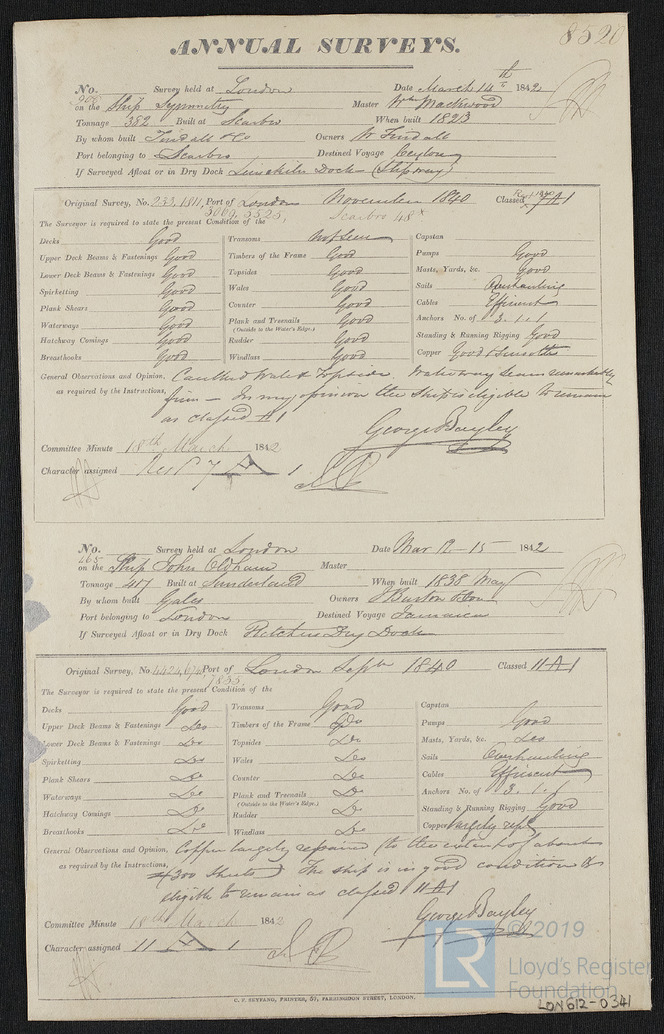 8520
ANNUAL SURVEYS.
No. 906 Survey held at London Date March 14th 1842
on the Ship Symmetry Master Mackwood
Tonnage 382 Built at Scarbro When built 1823
By whom built Tindall & Co Owners W Tindall
Port belonging to Scarbro Destined Voyage Ceylon
If Surveyed Afloat or in Dry Dock Limekiln Dock (Slipway)
Original Survey, No. 233, 1811, Port of London November 1840 Classed A1
5069, 5525, Scarbro 48
The Surveyor is required to state the present Condition of the
Decks Good Transoms Not seen Capstan
Upper Deck Beams & Fastenings Good Timbers of the Frame Good Pumps Good
Lower Deck Beams & Fastenings Good Topsides Good Masts, Yards, &c. Good
Spirketting Good Wales Good Sails Overhauling
Plank Shears Good Counter Good Cables Efficient
Waterways Good Plank and Treenails Good Anchors No. of 3.1.1
(Outside to the Water's Edge.)
Hatchway Comings Good Rudder Good Standing & Running Rigging Good
Breasthooks Good Windlass Good Copper Good & Smooth
General Observations and Opinion, Caulked Wales & Topside. Waterway Seams remarkably
as required by the Instructions, firm – In my opinion the Ship is eligible to remain
as classed A1
George Bayley
Committee Minute 18th March 1842
Character assigned 7 A 1
No. 265 Survey held at London Date Mar 12–15 1842
on the Ship John Oldham Master
Tonnage 417 Built at Sunderland When built 1838 May
By whom built Gales Owners Burton & Son
Port belonging to London Destined Voyage Jamaica
If Surveyed Afloat or in Dry Dock Fletchers Dry Dock
Original Survey, No. Port of London Septr 1840 Classed 11 A1
7855
The Surveyor is required to state the present Condition of the
Decks Good Transoms Good Capstan
Upper Deck Beams & Fastenings Do Timbers of the Frame Do Pumps Good
Lower Deck Beams & Fastenings Do Topsides Do Masts, Yards, &c. Do
Spirketting Do Wales Do Sails Overhauling
Plank Shears Do Counter Do Cables Efficient
Waterways Do Plank and Treenails Do Anchors No. of 3.1.1
(Outside to the Water's Edge.)
Hatchway Comings Do Rudder Do Standing & Running Rigging Good
Breasthooks Do Windlass Do Copper largely repd
General Observations and Opinion, Copper largely repaired (to the extent of about
as required by the Instructions, 300 Sheets) The ship is in good condition &
eligible to remain as classed 11 A1
George Bayley
Committee Minute 18th March 1842
Character assigned 11 A 1
C. F. SEYFANG, PRINTER, 59, FARRINGDON STREET, LONDON.
LR © 2019
Lloyd's Register
Foundation
LDN612-0341